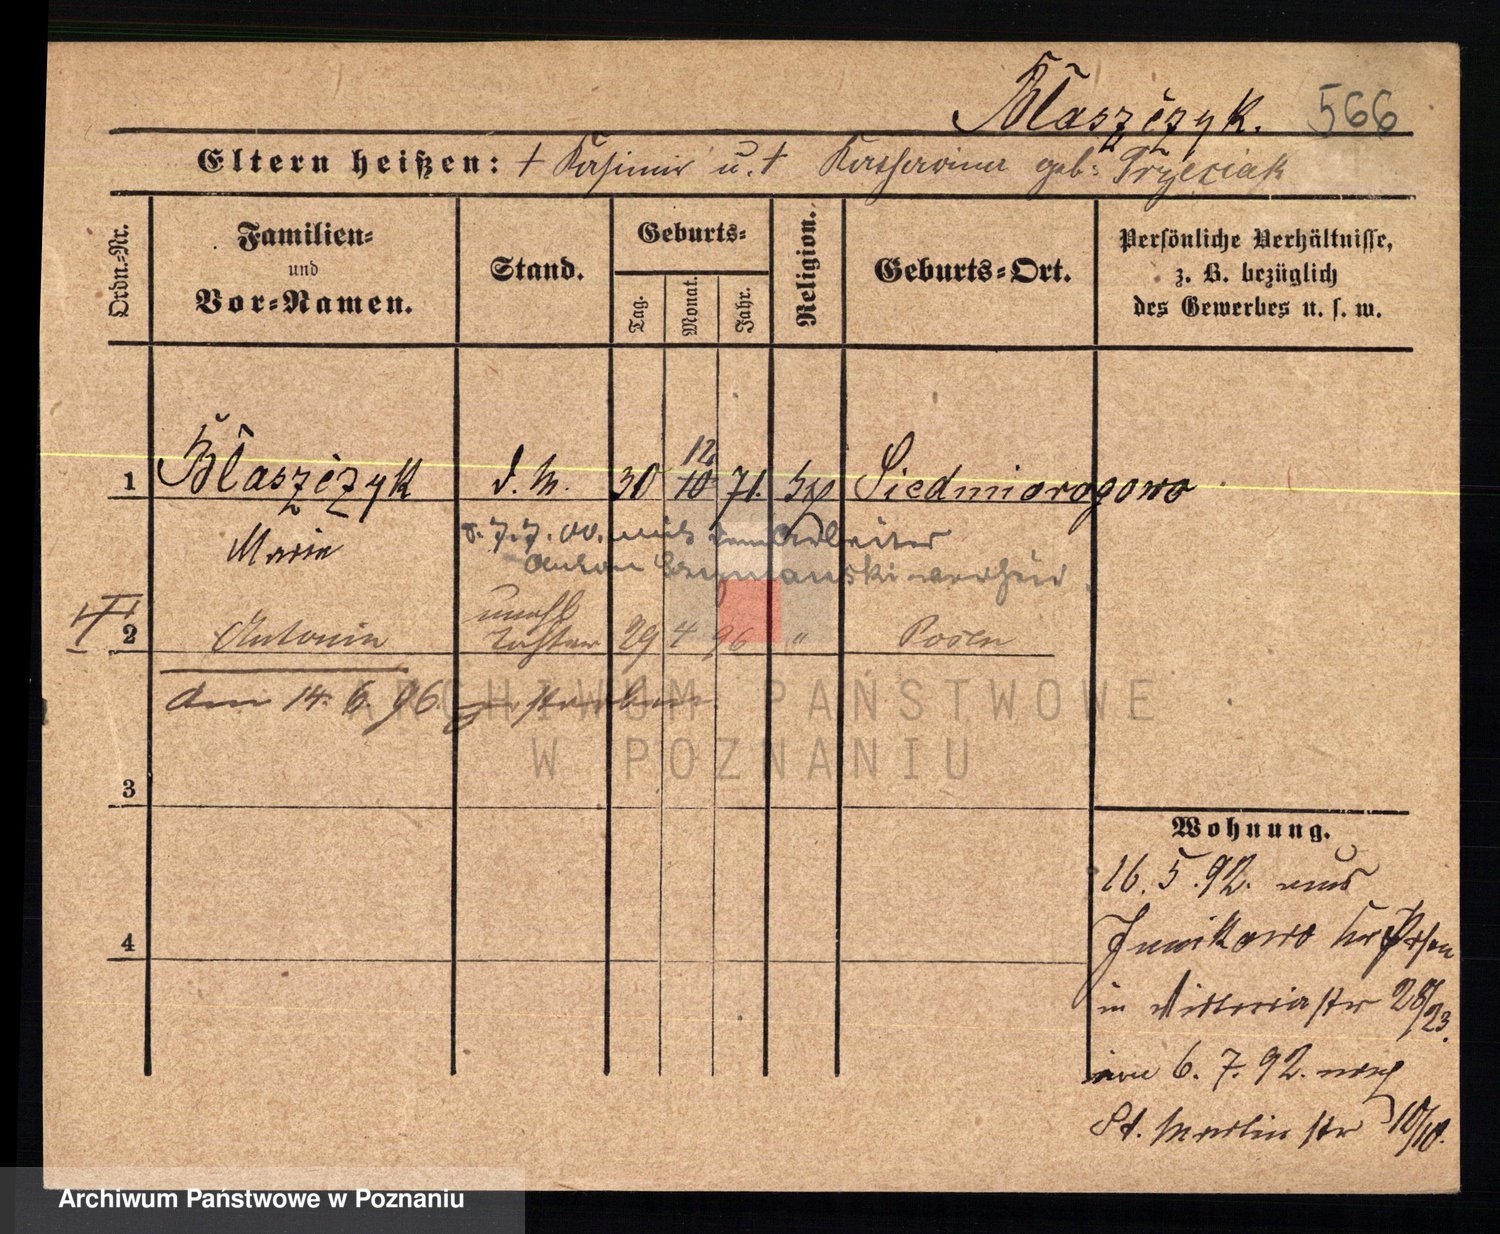 Błaszczyk. 566
Eltern heißen: + Kasimir u. + Katharina geb: Trzeciak
Ordn.-Nr.
Familien-
und
Vor-Namen.
Stand.
Geburts-
Tag.
Monat.
Jahr.
Religion.
Geburts-Ort.
Persönliche Verhältnisse,
z. B. bezüglich
des Gewerbes u. s. w.
12
1 Błaszczyk d. M. 30 10 71. Siedmiorogowo
Marie
7. 7. 00. mit dem Arbeiter
Anton Szymanski verheir.
unehl
2 Antonie Tochter 29 4 96 " Posen
den 14. 6. 96. gestorben.
ARCHIWUM PAŃSTWOWE
W POZNANIU
3
4
Wohnung.
16. 5. 92. aus
Junikowo Kr Posen
in Victoriastr 28/23.
6. 7. 92. nach
St. Martin str 10/18.
Archiwum Państwowe w Poznaniu